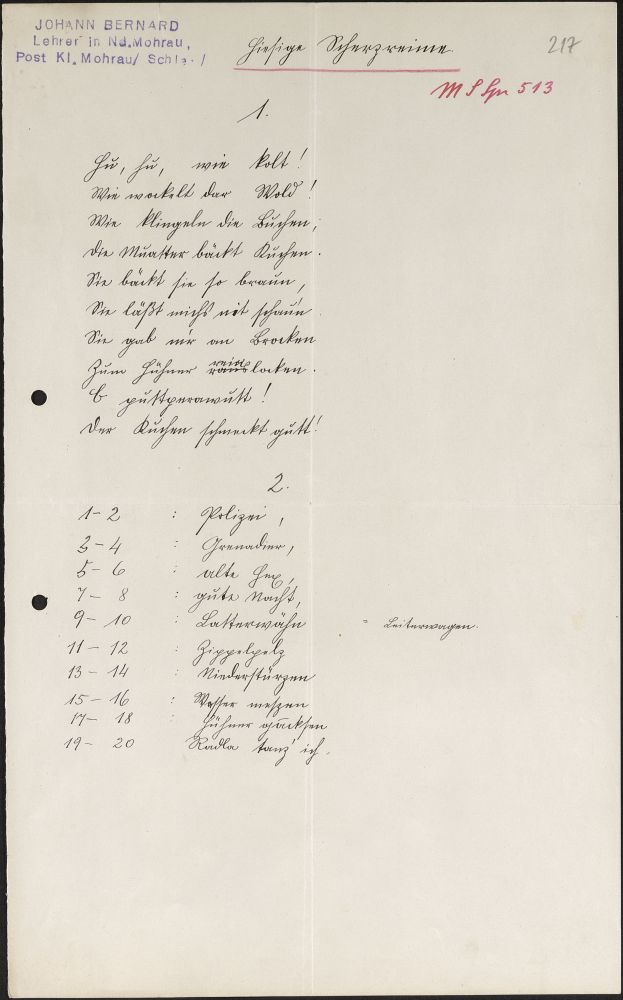 JOHANN BERNARD
Lehrer in Nd. Mohrau,
Post Kl. Mohrau/ Schles. /
Hiesige Scherzreime.
217
M S Gn 513
1.
Hu, hu, wie kolt!
Wie wockelt dar Wold!
Wie klingeln die Buchen,
die Muatter bäckt Kuchen.
Sie bäckt sie so braun,
Sie läßt michs nit schaun.
Sie gab mir an Brocken
Zum Hühner locken.
E pustperawutt!
Der Kuchen schmeckt gutt!
2.
1-2 : Polizei,
3-4 : Grenadier,
5-6 : alte Hex,
7-8 : gute Nacht,
9-10 : Latterwähn = Leiterwagen.
11-12 : Zippelpelz
13-14 : Niederstürzen
15-16 : Wosser messzen
17-18 : Hühner gäcksen
19-20 Radla tanz' ich.